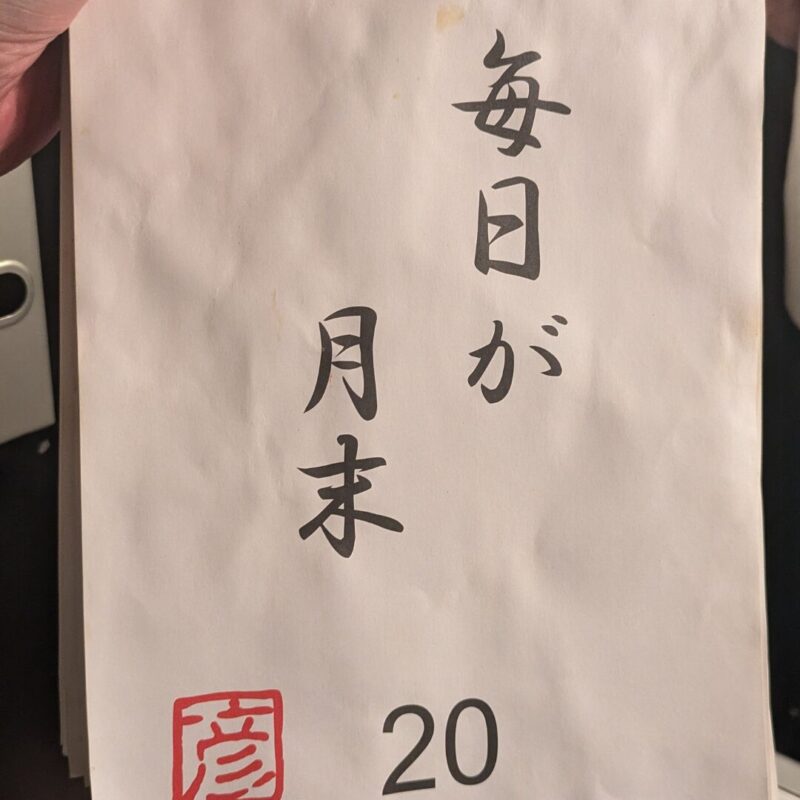 毎日が
月末
彦
20